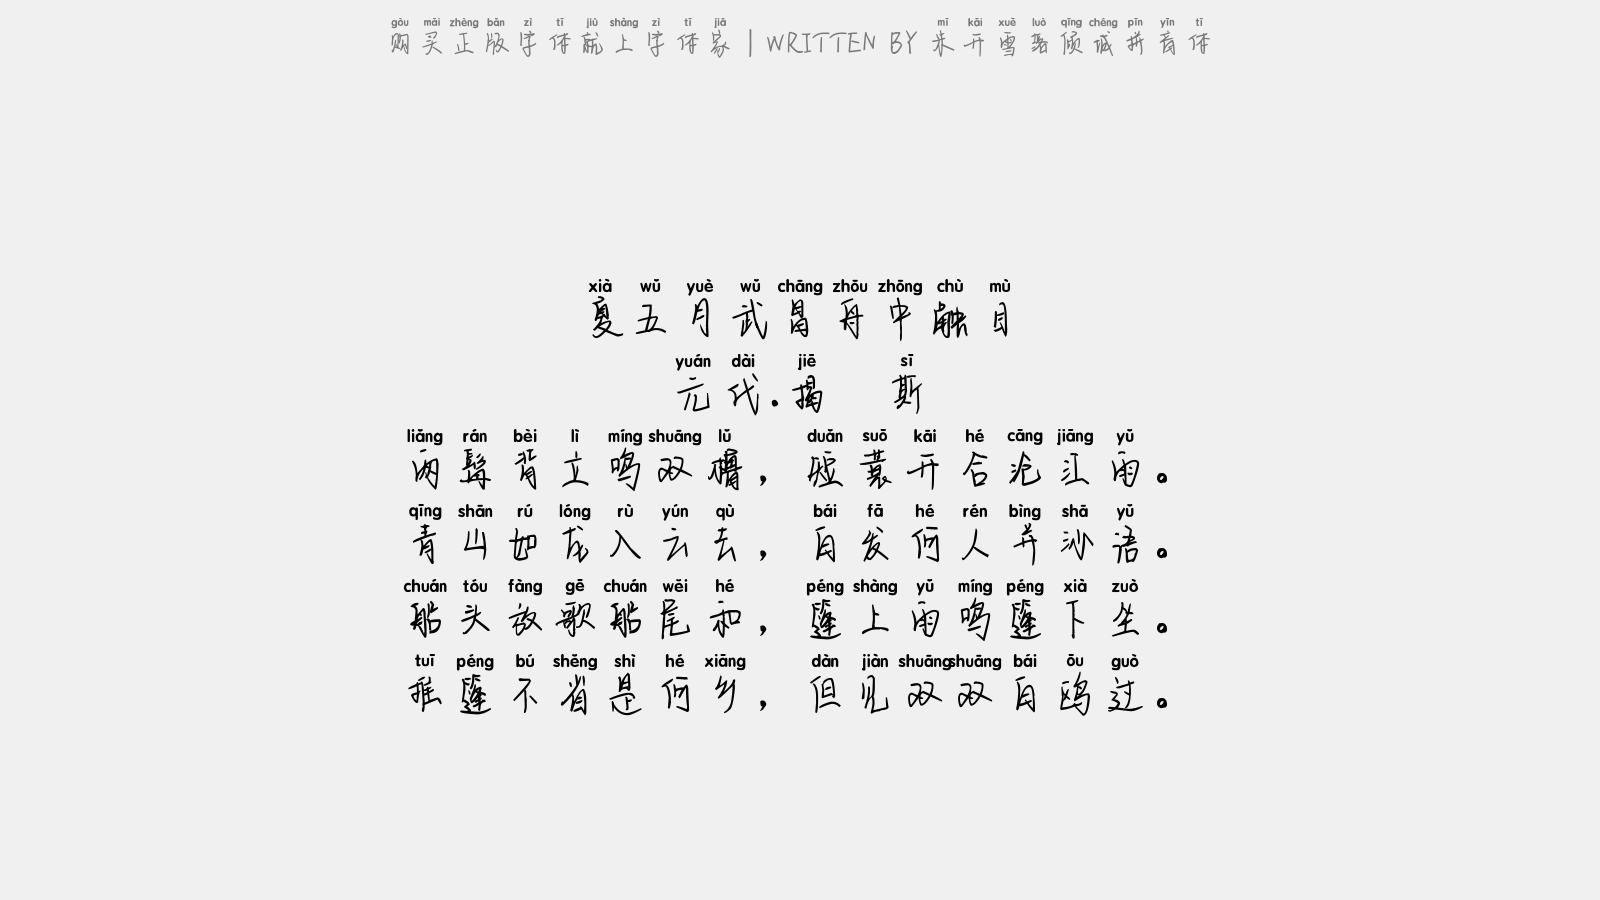 gòu mǎi zhèng bǎn zì tǐ jiù shàng zì tǐ jiā mǐ kāi xuě luò qīng chéng pīn yīn tǐ
购买正版字体就上字体家 | WRITTEN BY 米开雪落倾城拼音体
xià wǔ yuè wǔ chāng zhōu zhōng chù mù
夏五月武昌舟中触目
yuán dài jiē sī
元代.揭 斯
liǎng rán bèi lì míng shuāng lǔ duǎn suō kāi hé cāng jiāng yǔ
两髯背立鸣双橹，短蓑开合沧江雨。
qīng shān rú lóng rù yún qù bái fā hé rén bìng shā yǔ
青山如龙入云去，白发何人并沙语。
chuán tóu fàng gē chuán wěi hé péng shàng yǔ míng péng xià zuò
船头放歌船尾和，篷上雨鸣篷下坐。
tuī péng bú shěng shì hé xiāng dàn jiàn shuāng shuāng bái ōu guò
推篷不省是何乡，但见双双白鸥过。